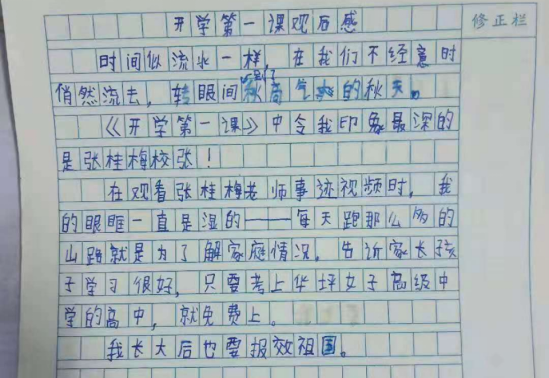 开学第一课观后感
修正栏
时间似流水一样，在我们不经意时
悄然流去，转眼间又到了秋高气爽的秋天。
《开学第一课》中令我印象最深的
是张桂梅校张！
在观看张桂梅老师事迹视频时，我
的眼眶一直是湿的——每天跑那么多的
山路就是为了解家庭情况，告诉家长孩
子学习很好，只要考上华坪女子高级中
学的高中，就免费上。
我长大后也要报效祖国。